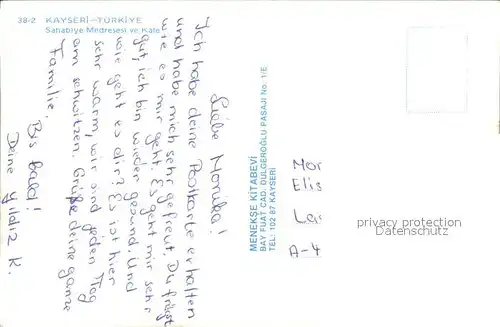 38-2 KAYSERİ-TÜRKİYE
Sahabiye Medresesi ve Kale
Liebe Monika!
Ich habe deine Postkarte erhalten
und habe mich sehr gefreut. Du frägst
wie es mir geht. Es geht mir sehr
gut, ich bin wieder gesund. Und
wie geht es dir? Es ist hier
sehr warm, wir sind jeden Tag
am schwitzen. Grüße deine ganze
Familie.
Bis bald!
Deine Yıldız K.
MENEKŞE KİTABEVİ
BAY FUAT CAD. DULGEROĞLU PASAJI No. 1/E
TEL: 102 87 KAYSERİ
Mor
Elis
A-4
privacy protection
Datenschutz